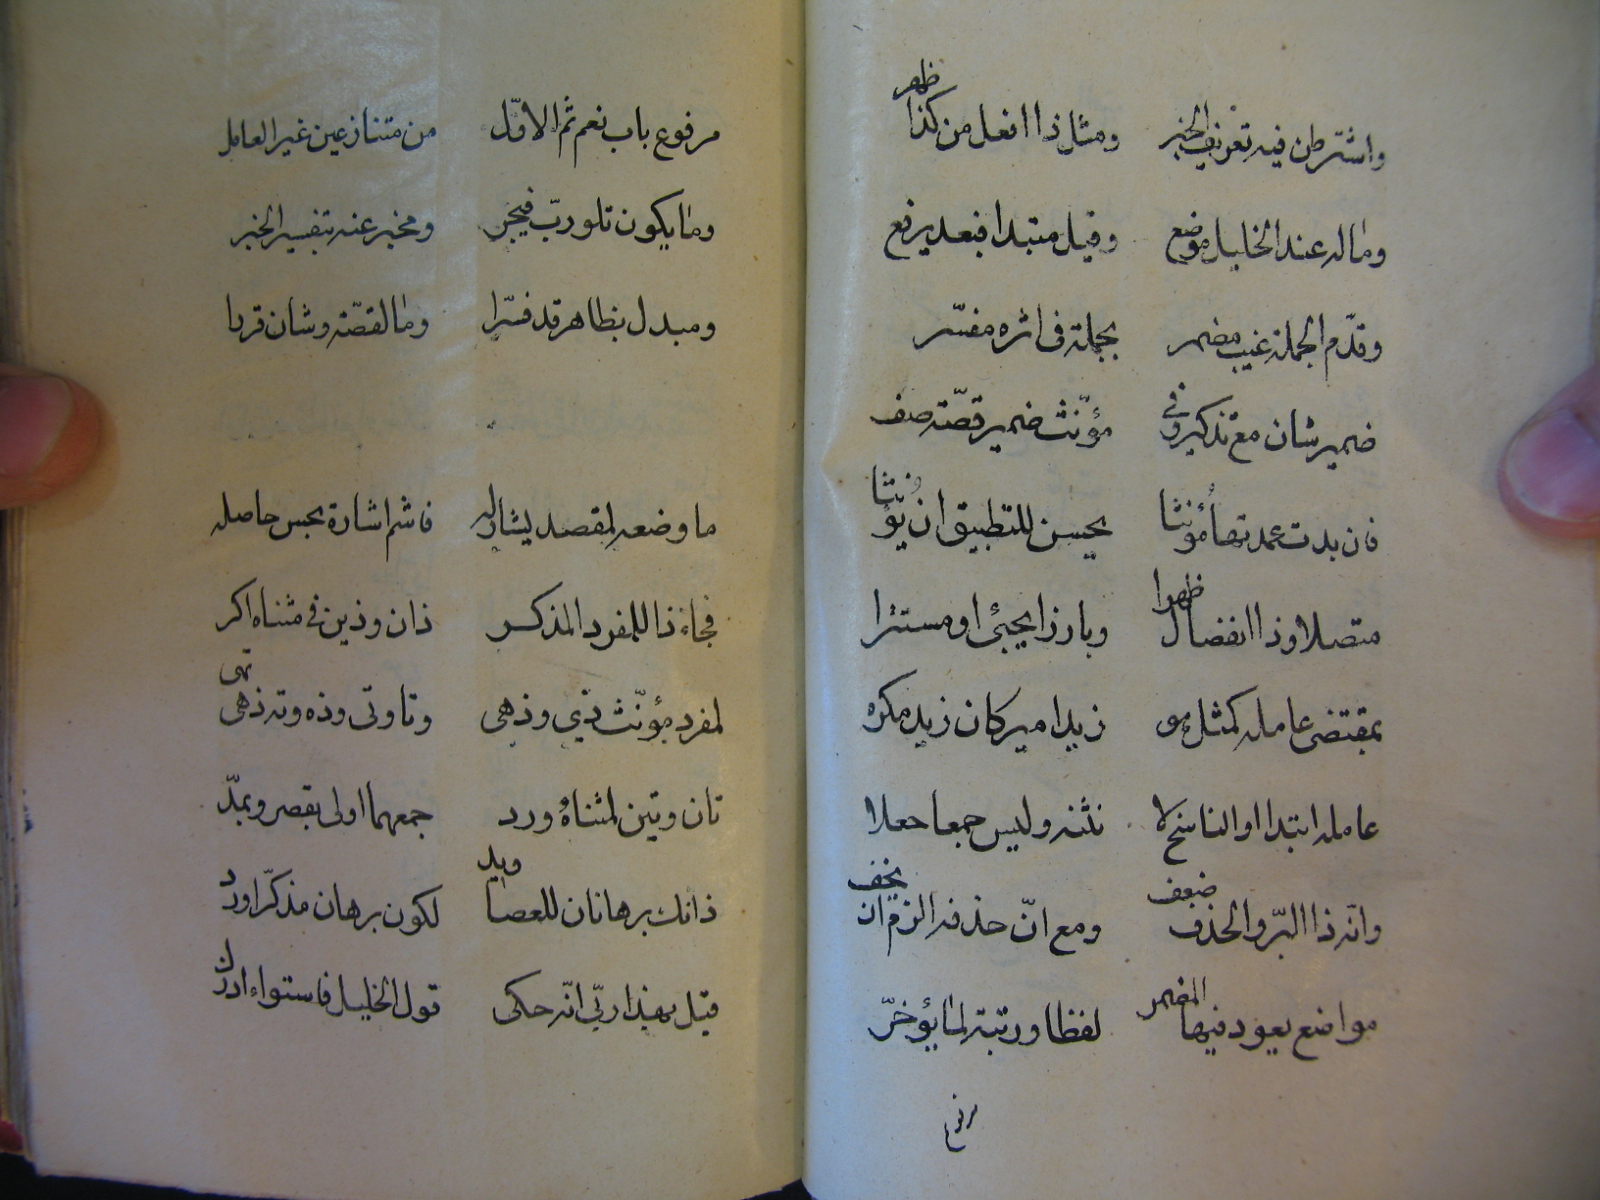 واشترطن فيه تعريف الخبر ومثل ذا افعل من كذا ظهر
وماله عند الخليل موضع وقيل مبتدا فبعد يرفع
وقدّم الجملة غيب مضمر بجملة فى اثره مفسّر
ضمير شان مع تذكير وفى مؤنّث ضمير قصّة صف
فان بدت عمدتها مؤنثا يحسن للتطبيق ان يؤنثا
متصلا وذا انفصال ظهرا وبارزا يجيئ او مستترا
بمقتضى عامله كمثل هو زيد امير كان زيد مكره
عامله ابتدا او الناسخ لا نثنه وليس جمعا جعلا
وانّه ذا البرّ والحذف ضعف ومع انّ حذفه الزم ان يخف
مواضع يعود فيها المضمر لفظا ورتبة لما يؤخّر
مرفوع
مرفوع باب نعم ثم الاوّل من متنازعين غير العامل
وما يكون تلو ربّ فيجر ومخبر عنه بتفسير الخبر
ومبدل بظاهر قد فسّرا وما لقصّة وشان قررا
ما وضعه لمقصد يشار له فاسم اشارة بحس حاصله
فجاء ذا للمفرد المذكر ذان وذين فى مثناه اكر
لمفرد مؤنّث ذي وذهى وتا وتى وذه وته ذهى تهى
تان وتين لمثناه ورد جمعهما اولى بقصر وبمدّ
ذانك برهانان للعصا ويد لكون برهان مذكّرا ورد
قيل بهذا ربّي انّه حكى قول الخليل فاستواء ادرك